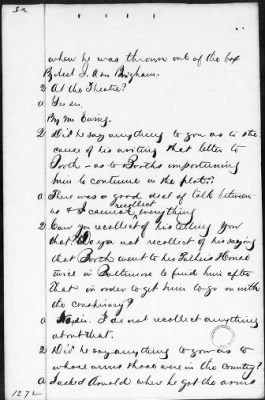 when he was thrown out of the box
By Asst J. Adv Bingham.
Q At the Theatre?
A Yes sir.
By Mr Ewing.
Q Did he say anything to you as to the
cause of his writing that letter to
Booth - as to Booths importuning
him to continue in the plot?
A There was a good deal of talk between
us & I cannot recollect everything
Q Can you recollect of his telling you
that? Do you not recollect of his saying
that Booth went to his Father's House
twice in Baltimore to find him after
that in order to get him to go on with
the conspiracy?
A No sir. I do not recollect anything
about that.
Q Did he say anything to you as to
whose arms those were in the Country?
A I asked Arnold where he got the arms